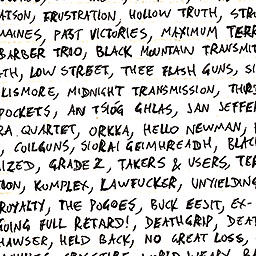 ATSON, FRUSTRATION, HOLLOW TRUTH, STR
MAINES, PAST VICTORIES, MAXIMUM TERR
BARBER TRIO, BLACK MOUNTAIN TRANSMIT
TH, LOW STREET, THEE FLASH GUNS, SI
LISMORE, MIDNIGHT TRANSMISSION, THIR
POCKETS, AN TSIÓG GHLAS, JAN JEFFER
RA QUARTET, ORKKA, HELLO NEWMAN,
, COILGUNS, SIORAI GEIMHREADH, BLAC
IZED, GRADE 2, TAKERS & USERS, TER
TION, KOMPLEX, LAWFUCKER, UNYIELDING
ROYALTY, THE POGOES, BUCK EEJIT, EX-
GOING FULL RETARD!, DEATHGRIP, DEAT
HAWSER, HELD BACK, NO GREAT LOSS,